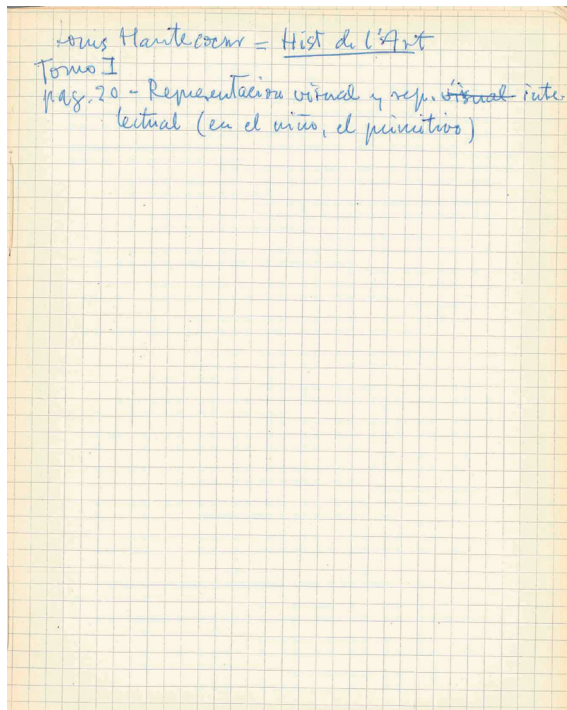 Louis Hautecoeur = Hist de l'Art
Tomo I
pag. 20 - Representacion visual y rep. visual inte-
lectual (en el niño, el primitivo)